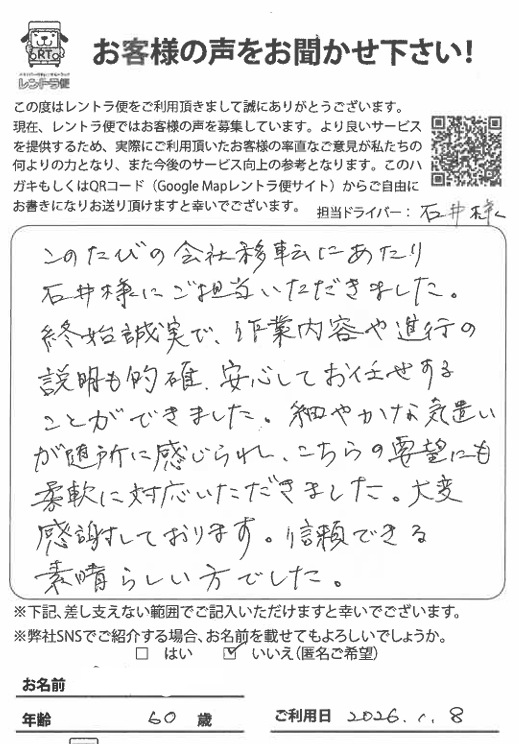 ORTO
レントラ便
お客様の声をお聞かせ下さい!
この度はレントラ便をご利用頂きまして誠にありがとうございます。
現在、レントラ便ではお客様の声を募集しています。より良いサービス
を提供するため、実際にご利用頂いたお客様の率直なご意見が私たちの
何よりの力となり、また今後のサービス向上の参考となります。このハ
ガキもしくはQRコード（Google Mapレントラ便サイト）からご自由に
お書きになりお送り頂けますと幸いでございます。 担当ドライバー：石井様
このたびの会社移転にあたり
石井様にご担当いただきました。
終始誠実で、作業内容や進行の
説明も的確、安心してお任せする
ことができました。細やかな気遣い
が随所に感じられ、こちらの要望にも
柔軟に対応いただきました。大変
感謝しております。信頼できる
素晴らしい方でした。
※下記、差し支えない範囲でご記入いただけますと幸いでございます。
※弊社SNSでご紹介する場合、お名前を載せてもよろしいでしょうか。
□ はい ☑ いいえ（匿名ご希望）
お名前
年齢 60 歳 ご利用日 2026.1.8